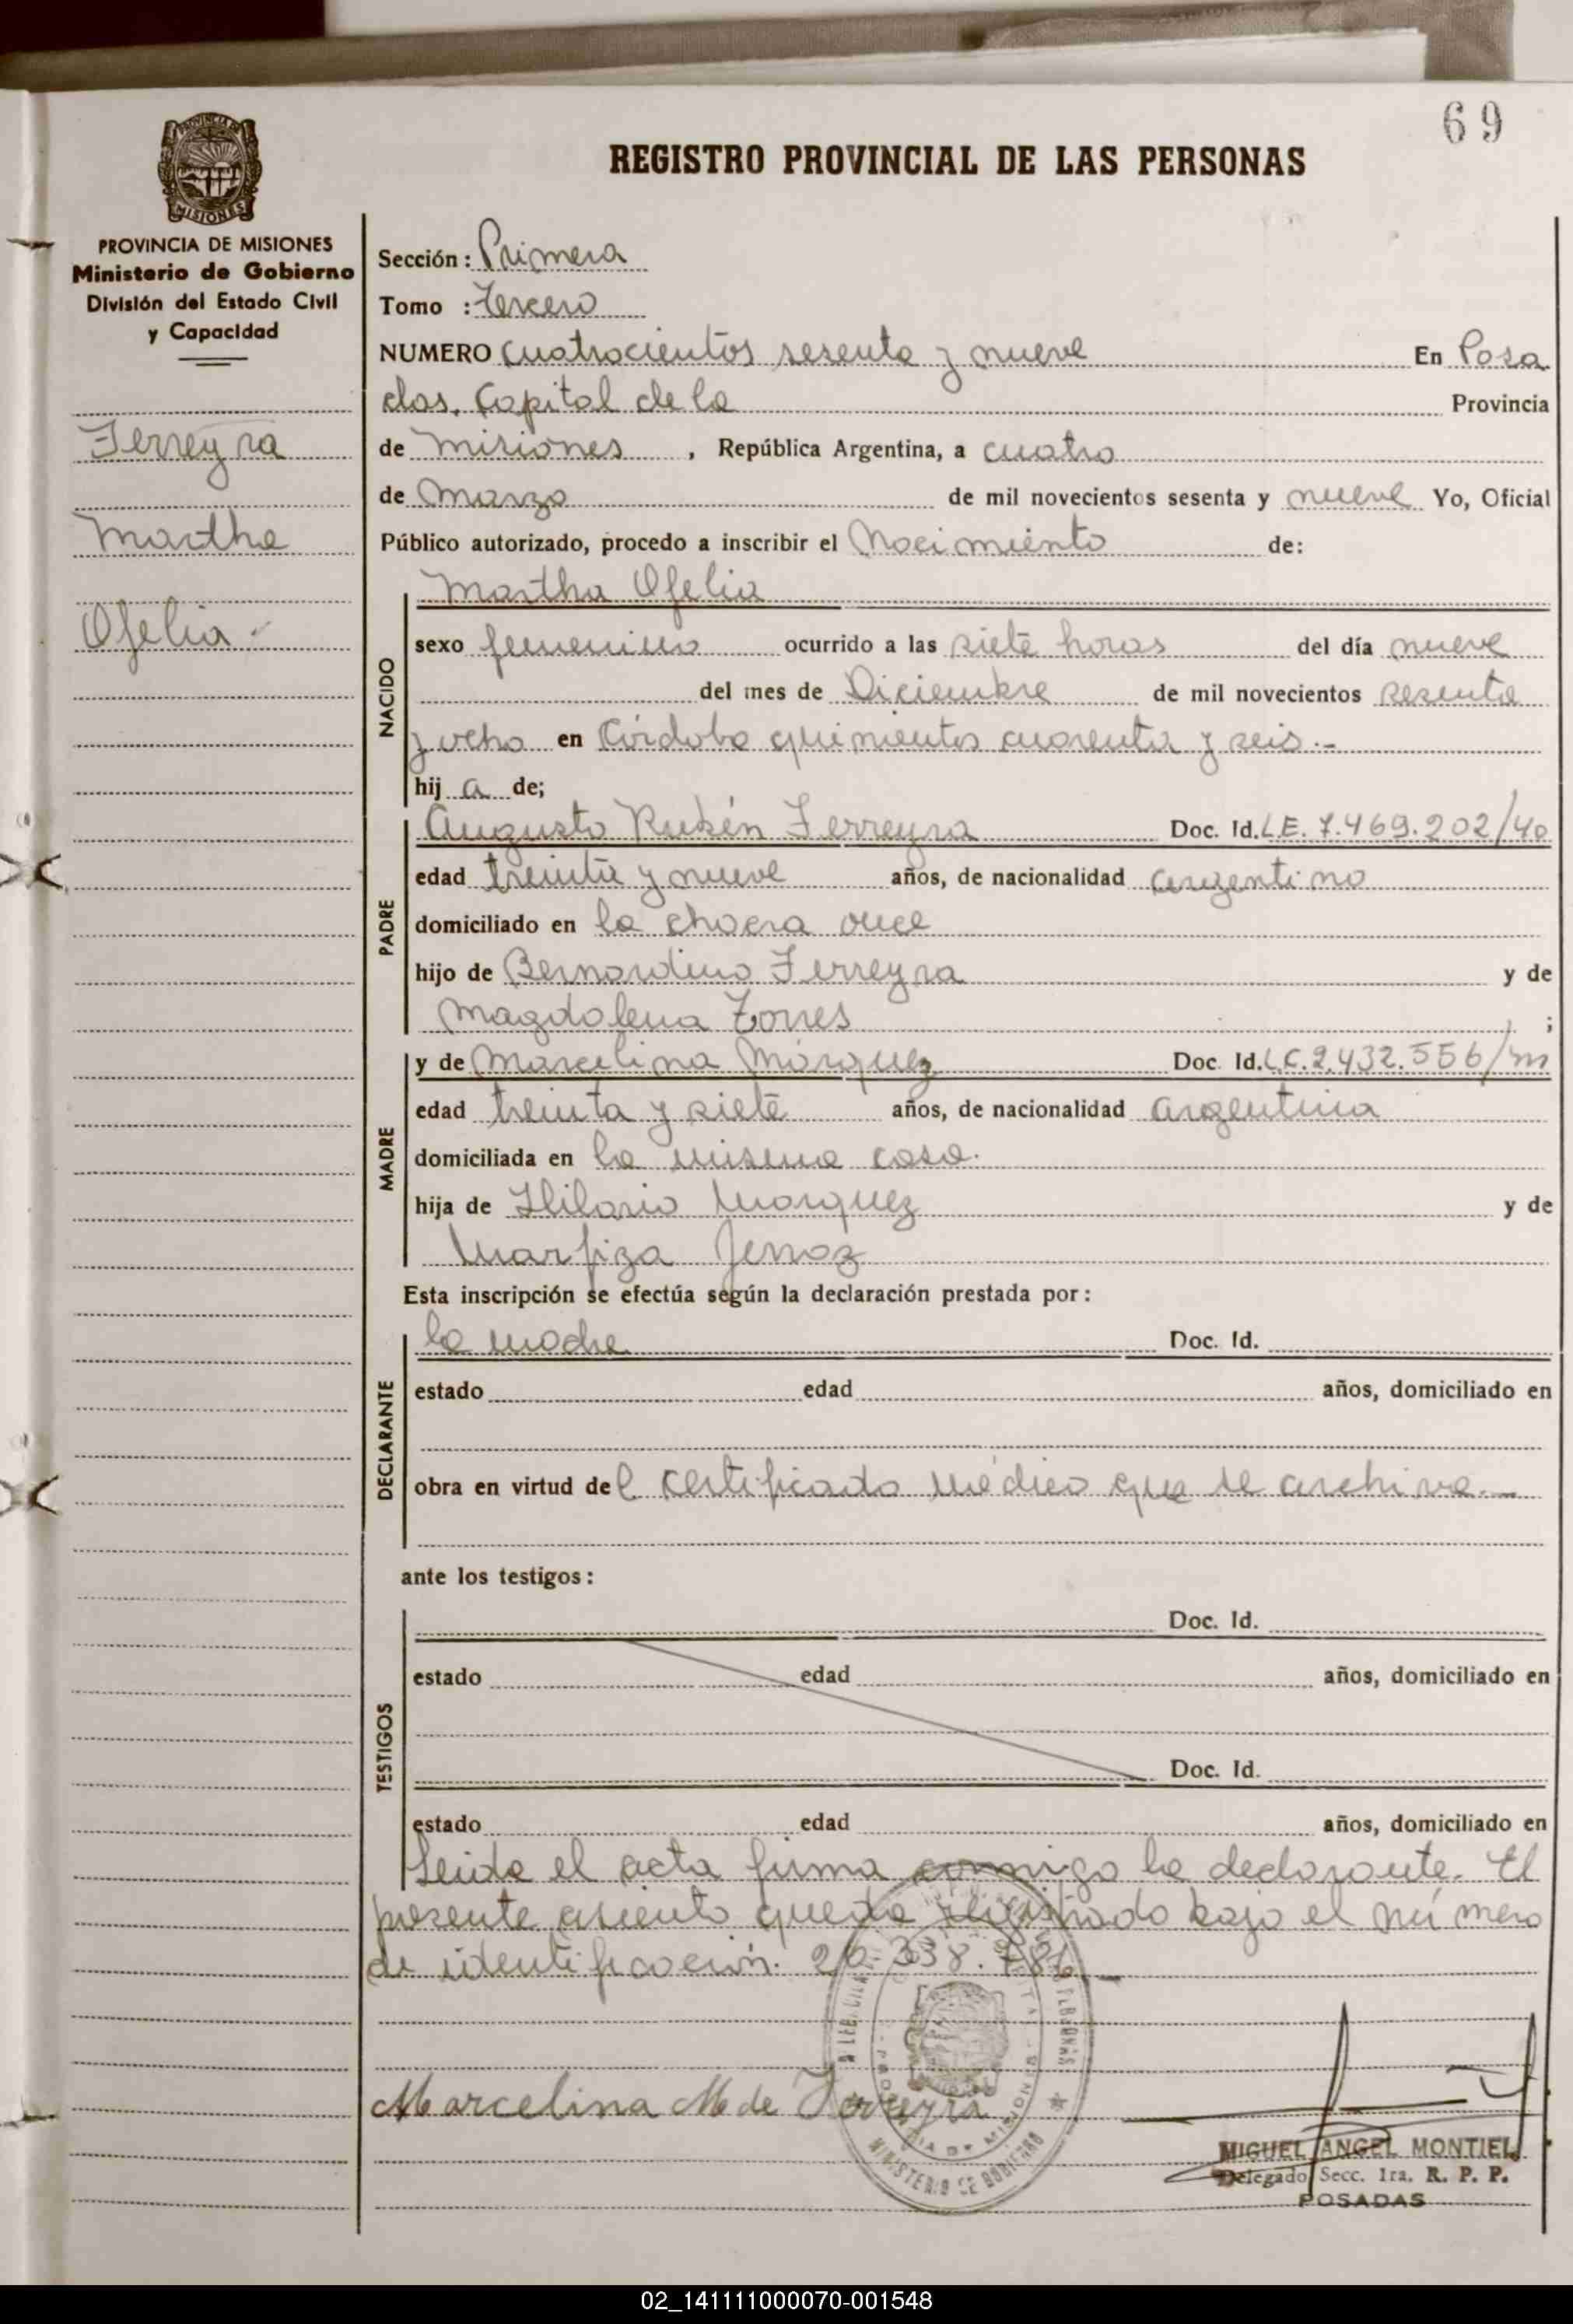 69
REGISTRO PROVINCIAL DE LAS PERSONAS
MISIONES
PROVINCIA DE MISIONES
Ministerio de Gobierno
División del Estado Civil
y Capacidad
Ferreyra
Martha
Ofelia.-
Sección: Primera
Tomo : tercero
NUMERO cuatrocientos sesenta y nueve En Posa
das. Capital de la Provincia
de misiones , República Argentina, a cuatro
de marzo de mil novecientos sesenta y nueve Yo, Oficial
Público autorizado, procedo a inscribir el Nacimiento de:
NACIDO
Martha Ofelia
sexo femenino ocurrido a las siete horas del día nueve
del mes de Diciembre de mil novecientos sesenta
y ocho en Córdoba quinientos cuarenta y seis.-
hij a de;
PADRE
Augusto Rubén Ferreyra Doc. Id. L.E. 7.469.202/40
edad treinta y nueve años, de nacionalidad argentino
domiciliado en la chacra once
hijo de Bernardino Ferreyra y de
Magdalena Torres ;
MADRE
y de Marcelina Márquez Doc. Id. L.C. 2.432.556/m
edad treinta y siete años, de nacionalidad argentina
domiciliada en la misma casa.
hija de Hilario Marquez y de
Marfiza
Esta inscripción se efectúa según la declaración prestada por:
DECLARANTE
la madre Doc. Id.
estado edad años, domiciliado en
obra en virtud del certificado médico que se archiva.-
ante los testigos:
TESTIGOS
Doc. Id.
estado edad años, domiciliado en
Doc. Id.
estado edad años, domiciliado en
Leida el acta firma conmigo la declarante. El
presente asiento queda registrado bajo el número
de identificación. 20.338.786
Marcelina M de Ferreyra
MINISTERIO DE GOBIERNO
MIGUEL ANGEL MONTIEL
Delegado Secc. 1ra. R. P. P.
POSADAS
02_141111000070-001548